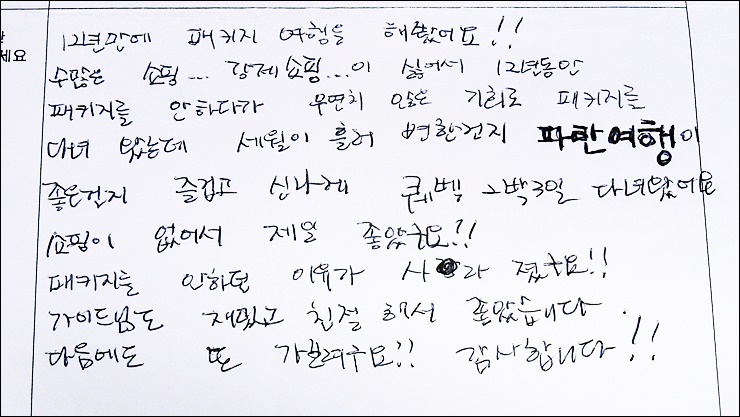 세요
12년만에 패키지 여행을 해봤어요!!
수많은 쇼핑... 강제쇼핑...이 싫어서 12년동안
패키지를 안하다가 우연치 않은 기회로 패키지를
다녀 왔는데 세월이 흘러 변한건지 파란여행이
좋은건지 즐겁고 신나게 퀘벡 2박3일 다녀왔어요
쇼핑이 없어서 제일 좋았구요!!
패키지를 안하던 이유가 사라 졌구요!!
가이드님도 재밌고 친절 해서 좋았습니다.
다음에도 또 가보려구요!! 감사합니다!!